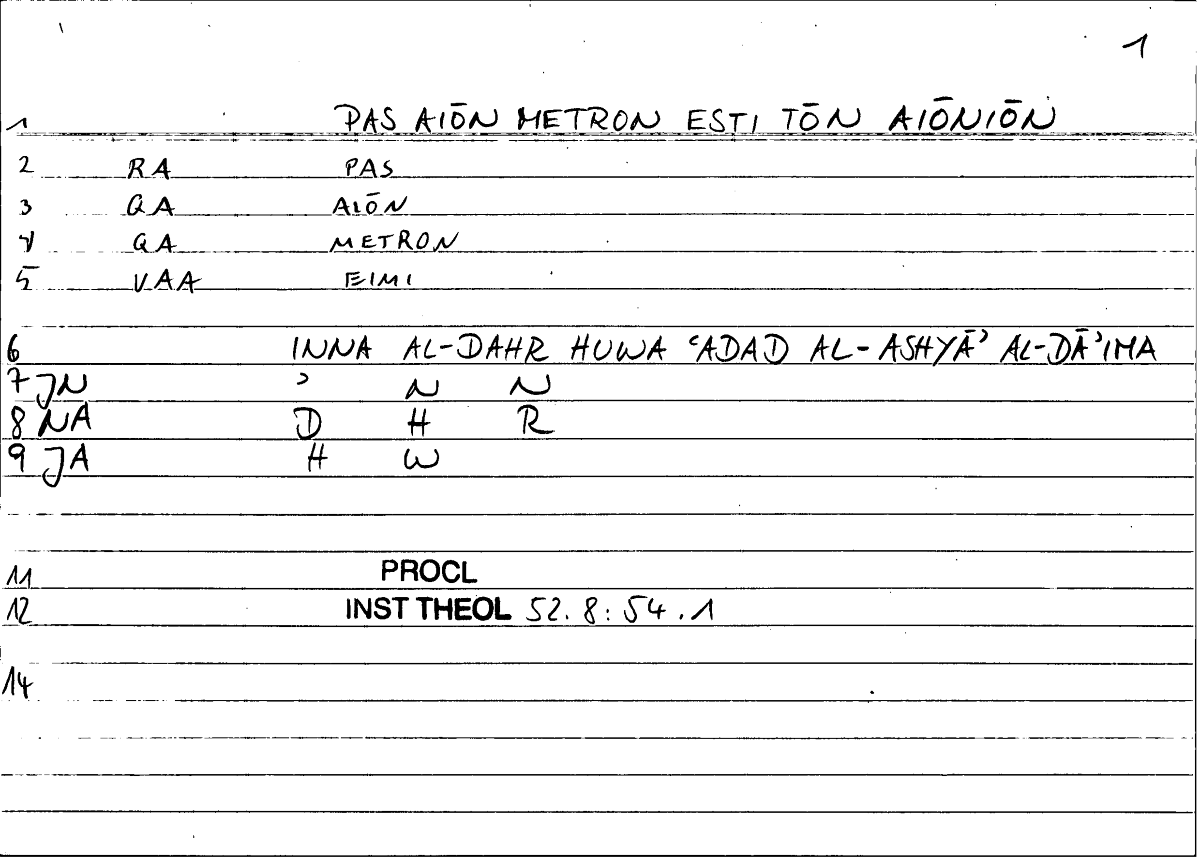 1
1 PAS AIŌN METRON ESTI TŌN AIŌNIŌN
2 RA PAS
3 QA AIŌN
4 QA METRON
5 VAA EIMI
6 INNA AL-DAHR HUWA ʿADAD AL-ASHYĀʾ AL-DĀʾIMA
7 JN ʾ N N
8 NA D H R
9 JA H W
11 PROCL
12 INST THEOL 52.8:54.1
14